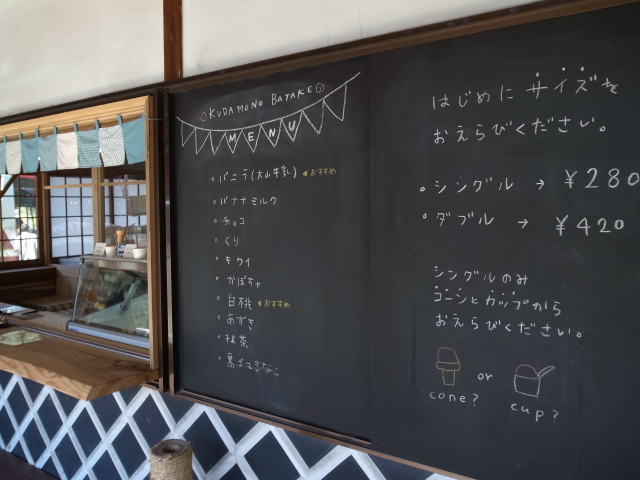 KUDAMONO BATAKE
MENU
バニラ(大山牛乳) おすすめ
バナナミルク
チョコ
くり
キウイ
かぼちゃ
白桃 おすすめ
あずき
抹茶
黒ごまきなこ
はじめにサイズを
おえらびください。
シングル → ¥280
ダブル → ¥420
シングルのみ
コーンとカップから
おえらびください。
or
cone?
cup?